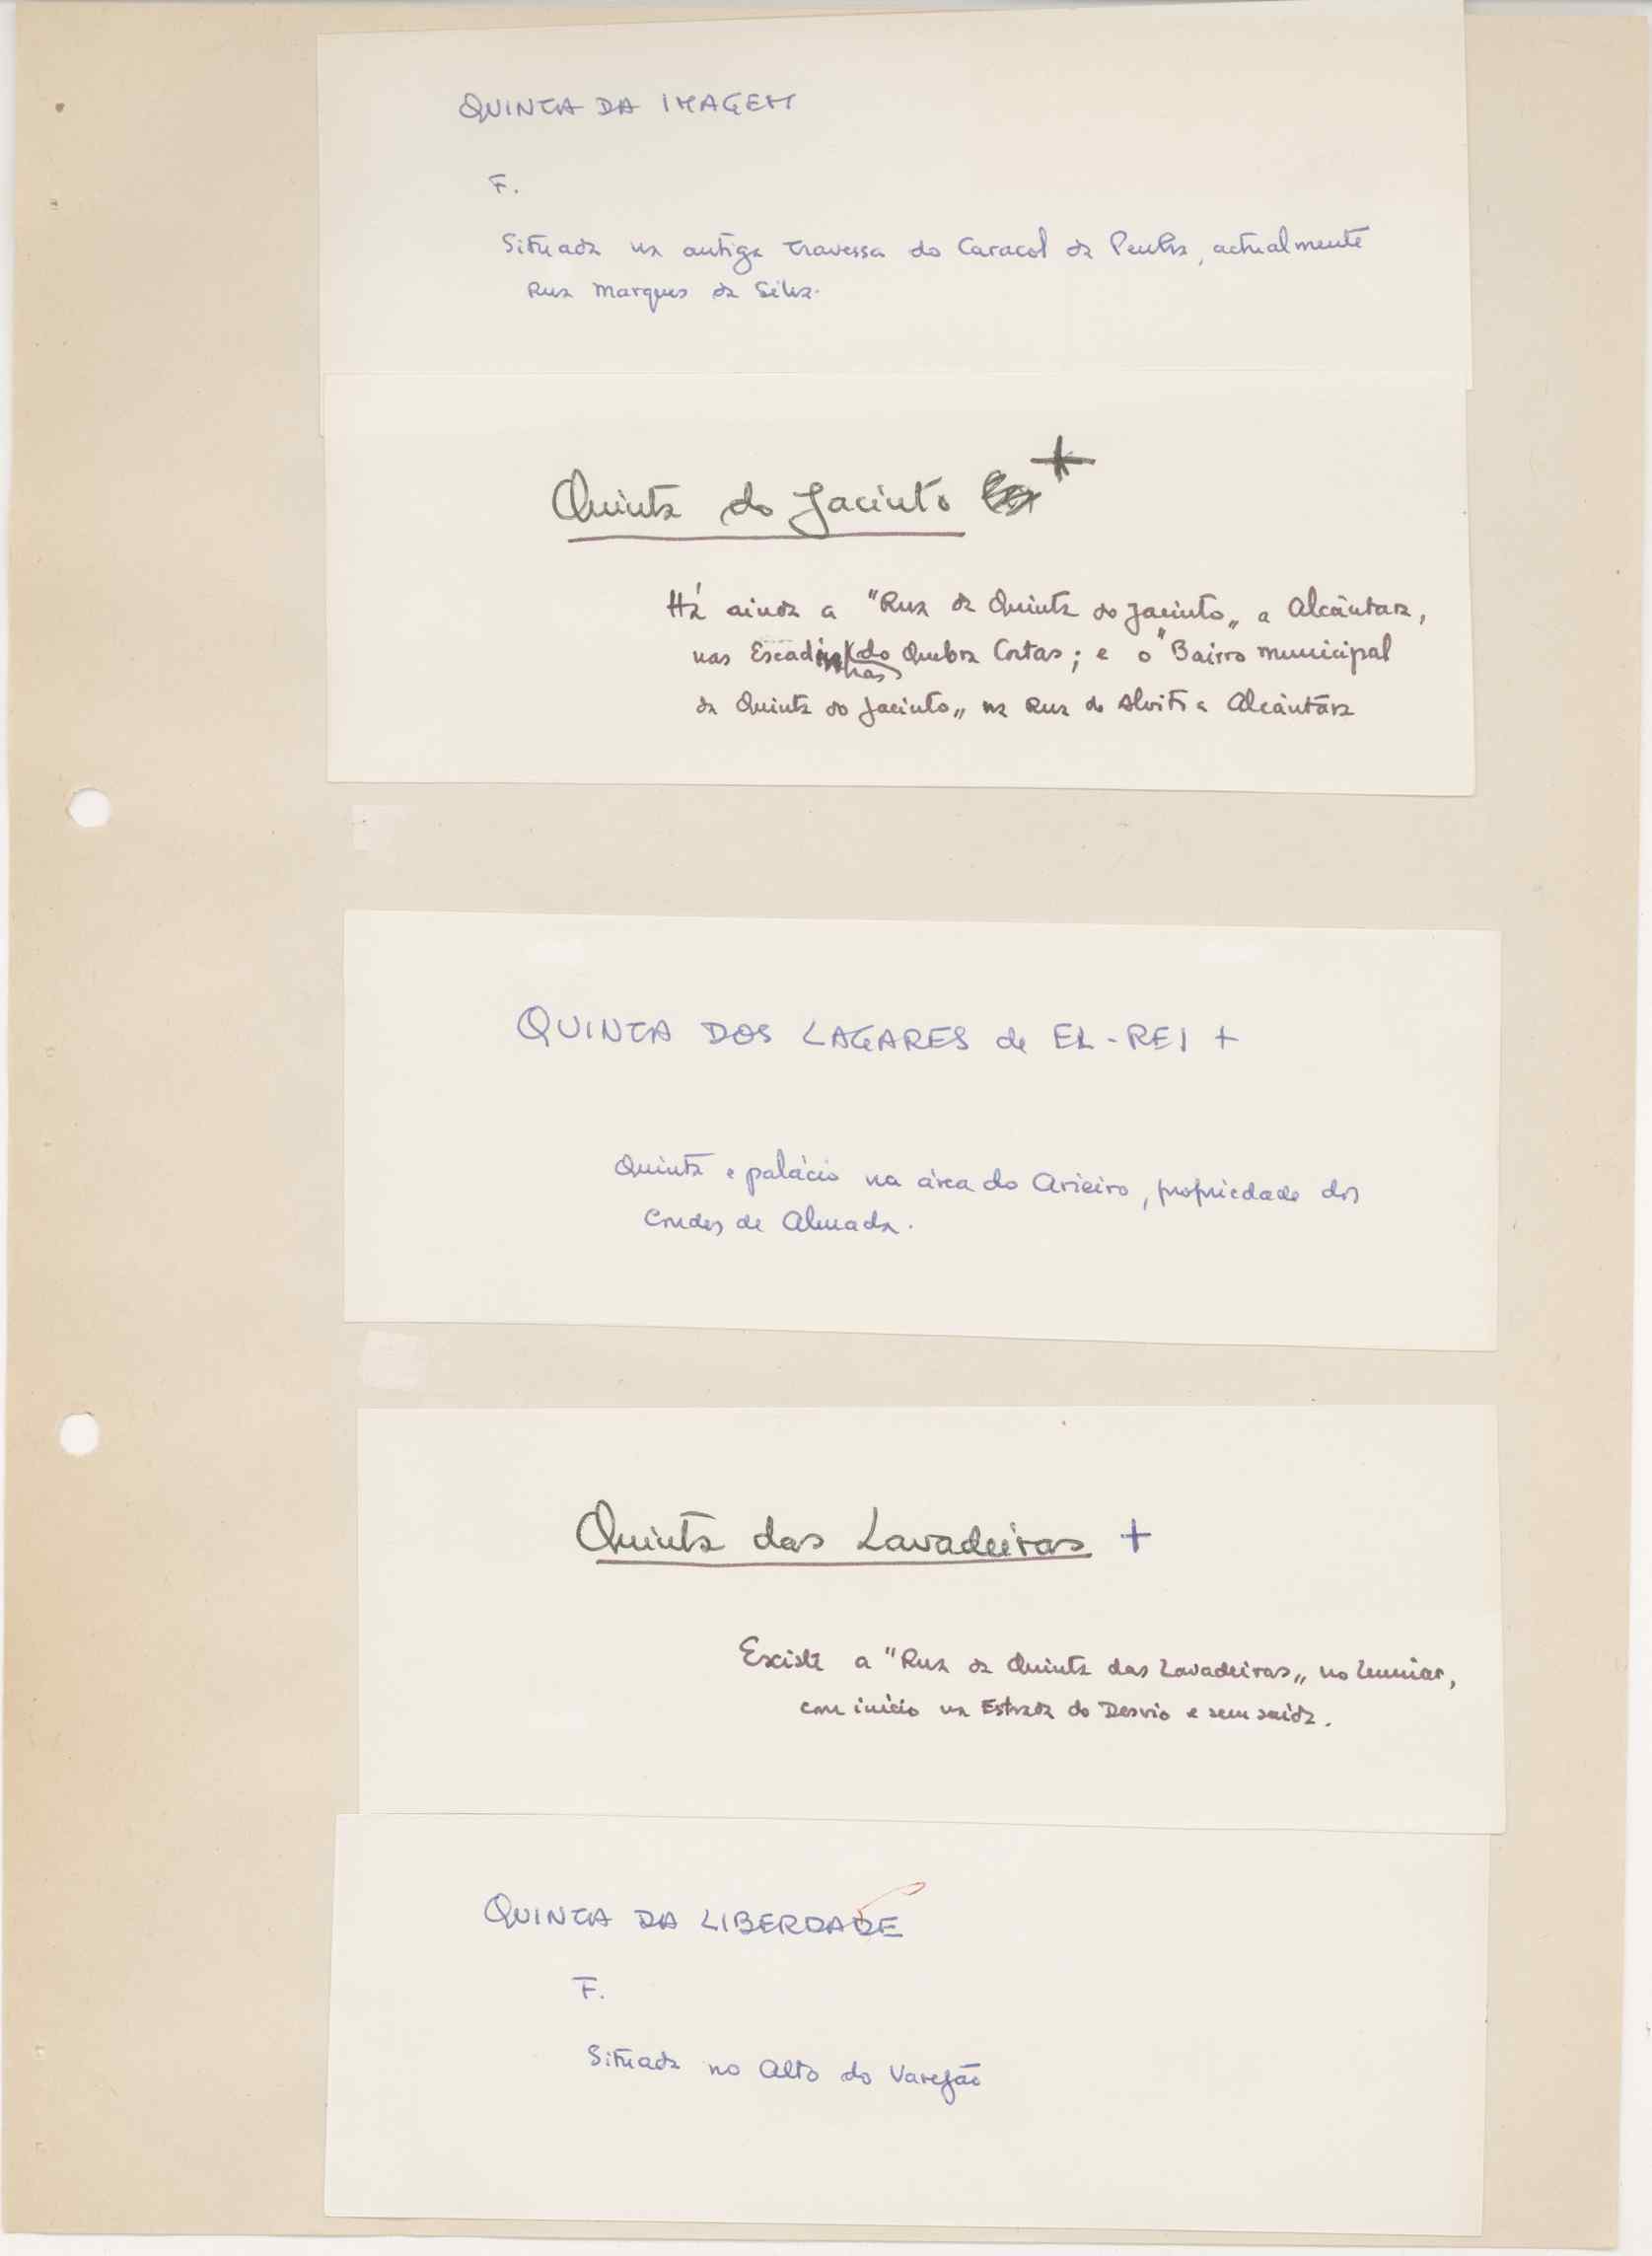 QUINTA DA IMAGEM
F.
Situada na antiga Travessa do Caracol da Penha, actualmente
Rua Marques da Silva.
Quinta do Jacinto +
Há ainda a "Rua da Quinta do Jacinto„ a Alcântara,
nas Escadinhas do Quebra Costas; e o "Bairro municipal
da Quinta do Jacinto„ na Rua do Alvito a Alcântara
QUINTA DOS LAGARES de EL-REI +
Quinta e palácio na área do Arieiro, propriedade dos
Condes de Almada.
Quinta das Lavadeiras +
Existe a "Rua da Quinta das Lavadeiras„ no Lumiar,
com início na Estrada do Desvio e sem saída.
QUINTA DA LIBERDADE
F.
Situada no Alto do Varejão